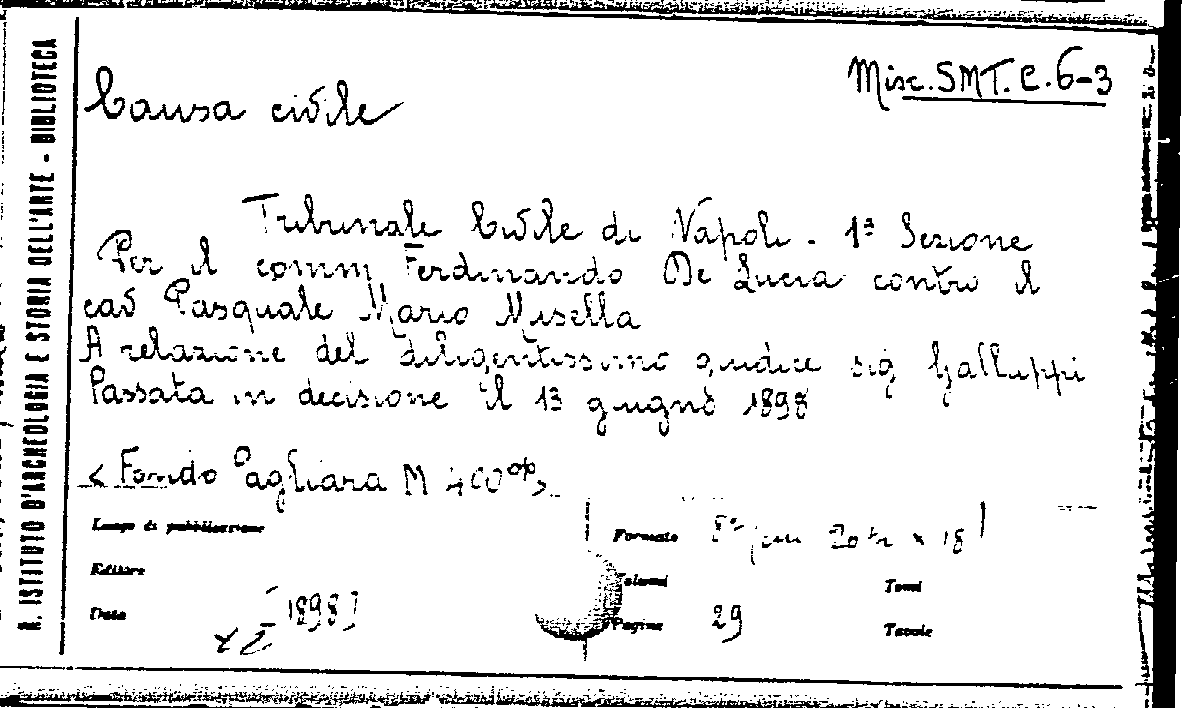 R. ISTITUTO D'ARCHEOLOGIA E STORIA DELL'ARTE - BIBLIOTECA
Misc. SMT. C. 6-3
Causa civile
Tribunale Civile di Napoli. 1ª Sezione
Per il comm Ferdinando De Lucia contro il
cav Pasquale Mario Misella
A relazione del diligentissimo giudice sig Galluppi
Passata in decisione il 13 giugno 1898
< Fondo Pagliara M 400 >
Luogo di pubblicazione
Formato 8º (cm × 18)
Editore
Volumi
Tomi
Data [1898]
Pagine 29
Tavole